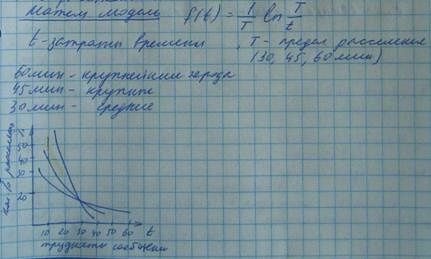 Матем. модель f(t) = 1/T ln T/t
t - затраты времени, T - предел расселения
(30, 45, 60 мин)
60 мин - крупнейшие города
45 мин - крупные
30 мин - средние
%
50
40
30
20
10 20 30 40 50 60 t
трудность сообщения